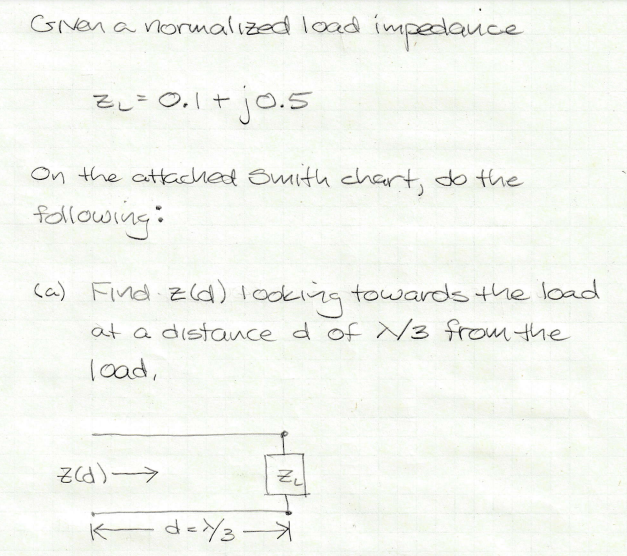 Given a normalized load impedance
z_L = 0.1 + j0.5
On the attached Smith chart, do the
following:
(a) Find z(d) looking towards the load
at a distance d of λ/3 from the
load.
z(d) → z_L
|← d = λ/3 →|